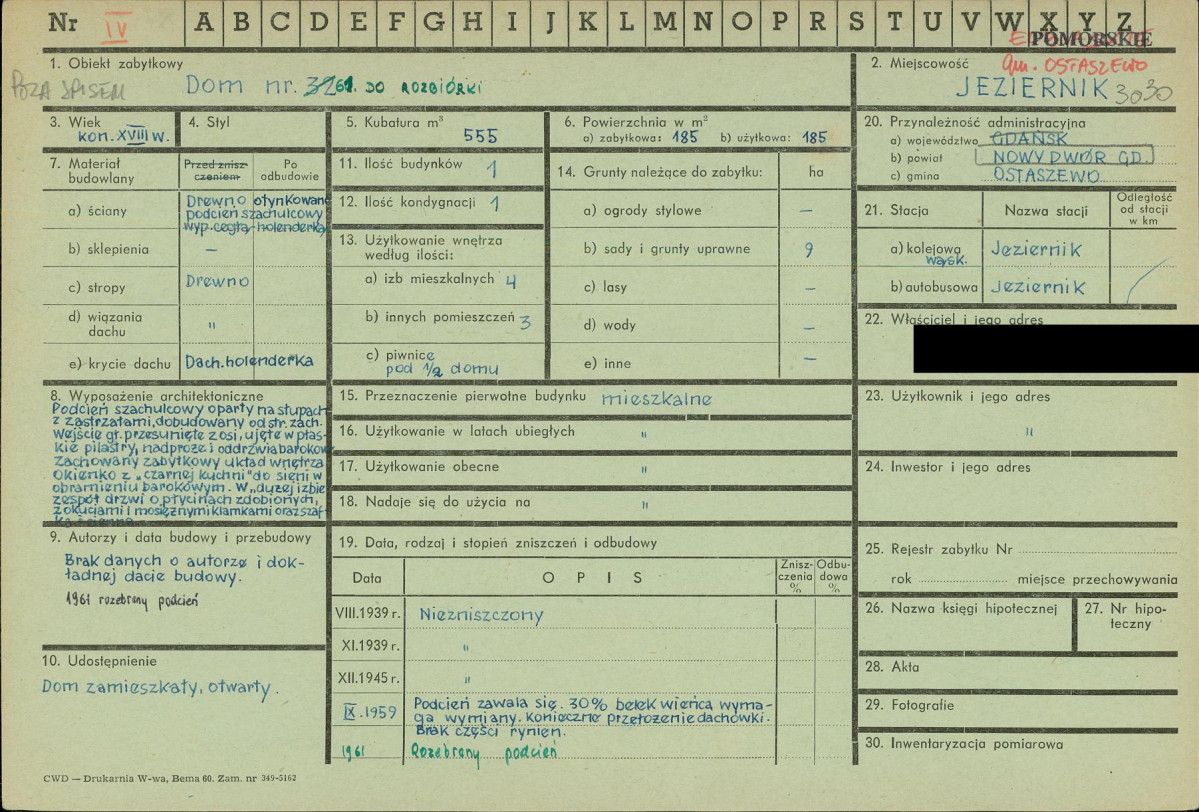 Nr IV A B C D E F G H I J K L M N O P R S T U V W X Y Z
POMORSKIE
gm. OSTASZEWO
1. Obiekt zabytkowy
POZA SPISEM
Dom nr. 32 61. DO ROZBIÓRKI
2. Miejscowość
JEZIERNIK 3030
3. Wiek
kon. XVIII w.
4. Styl
5. Kubatura m³
555
6. Powierzchnia w m²
a) zabytkowa: 185 b) użytkowa: 185
20. Przynależność administracyjna
a) województwo GDAŃSK
b) powiat NOWY DWÓR GD.
c) gmina OSTASZEWO
7. Materiał budowlany
Przed zniszczeniem
Po odbudowie
a) ściany
Drewno otynkowane
podcień szachulcowy
wyp. cegłą holenderką
b) sklepienia –
c) stropy Drewno
d) wiązania dachu "
e) krycie dachu Dach. holenderka
11. Ilość budynków 1
12. Ilość kondygnacji 1
13. Użytkowanie wnętrza
według ilości:
a) izb mieszkalnych 4
b) innych pomieszczeń 3
c) piwnice
pod 1/2 domu
14. Grunty należące do zabytku: ha
a) ogrody stylowe –
b) sady i grunty uprawne 9
c) lasy –
d) wody –
e) inne –
21. Stacja
Nazwa stacji
Odległość od stacji w km
a) kolejowa Jeziernik
wąsk.
b) autobusowa Jeziernik
22. Właściciel i jego adres
8. Wyposażenie architektoniczne
Podcień szachulcowy oparty na słupach
z zastrzałami, dobudowany od str. zach.
Wejście gł. przesunięte z osi, ujęte w płas-
kie pilastry, nadproże i oddrzwia barokow
Zachowany zabytkowy układ wnętrza
Okienko z „czarnej kuchni" do sieni w
obramieniu barokowym. W „dużej izbie
zespół drzwi o płycinach zdobionych,
żokuciami i mosiężnymi klamkami oraz szaf-
ka ścienna
15. Przeznaczenie pierwotne budynku mieszkalne
16. Użytkowanie w latach ubiegłych "
17. Użytkowanie obecne "
18. Nadaje się do użycia na "
23. Użytkownik i jego adres
"
24. Inwestor i jego adres
9. Autorzy i data budowy i przebudowy
Brak danych o autorze i dok-
ładnej dacie budowy.
1961 rozebrany podcień
10. Udostępnienie
Dom zamieszkały, otwarty.
19. Data, rodzaj i stopień zniszczeń i odbudowy
Data
OPIS
Znisz-
czenia
%
Odbu-
dowa
%
VIII.1939 r. Niezniszczony
XI.1939 r. "
XII.1945 r. "
IX.1959 Podcień zawala się. 30% belek wieńca wyma-
ga wymiany. Konieczne przełożenie dachówki.
Brak części rynien.
1961 Rozebrany podcień
25. Rejestr zabytku Nr
rok miejsce przechowywania
26. Nazwa księgi hipotecznej
27. Nr hipo-
teczny
28. Akta
29. Fotografie
30. Inwentaryzacja pomiarowa
CWD — Drukarnia W-wa, Bema 60. Zam. nr 349-5162